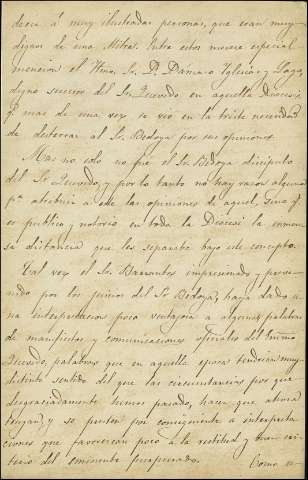 dense á muy ilustradas personas, que eran muy
dignos de una Mitra. Entre estos merece especial
mencion el Ilmo. Sr. D. Dámaso Iglesias y Lago,
digno sucesor del Sr. Quevedo, en aquella Diocesis
q.e mas de una vez se vió en la triste necesidad
de desterrar al Sr. Bedoya por sus opiniones.
Mas no solo no fue el Sr. Bedoya discipulo
del Sr. Quevedo, y por lo tanto no hay razon alguna
p.a atribuir a este las opiniones de aquel, sino q.e
es publico y notorio en toda la Diocesi la inmen
sa distancia que les separaba bajo este concepto.
Tal vez el Sr. Barrantes impresionado y preve-
nido por los juicios del Sr. Bedoya, haya dado u
na interpretacion poco ventajosa a algunas palabras
de manifiestos y comunicaciones oficiales del Emmo
Quevedo, palabras que en aquella epoca tendrian muy
distinto sentido del que las circunstancias por que
desgraciadamente hemos pasado, hacen que ahora
tengan, y se presten por consiguiente a interpreta
ciones que favorecen poco a la rectitud y buen cri-
terio del eminente purpurado.
Como u-